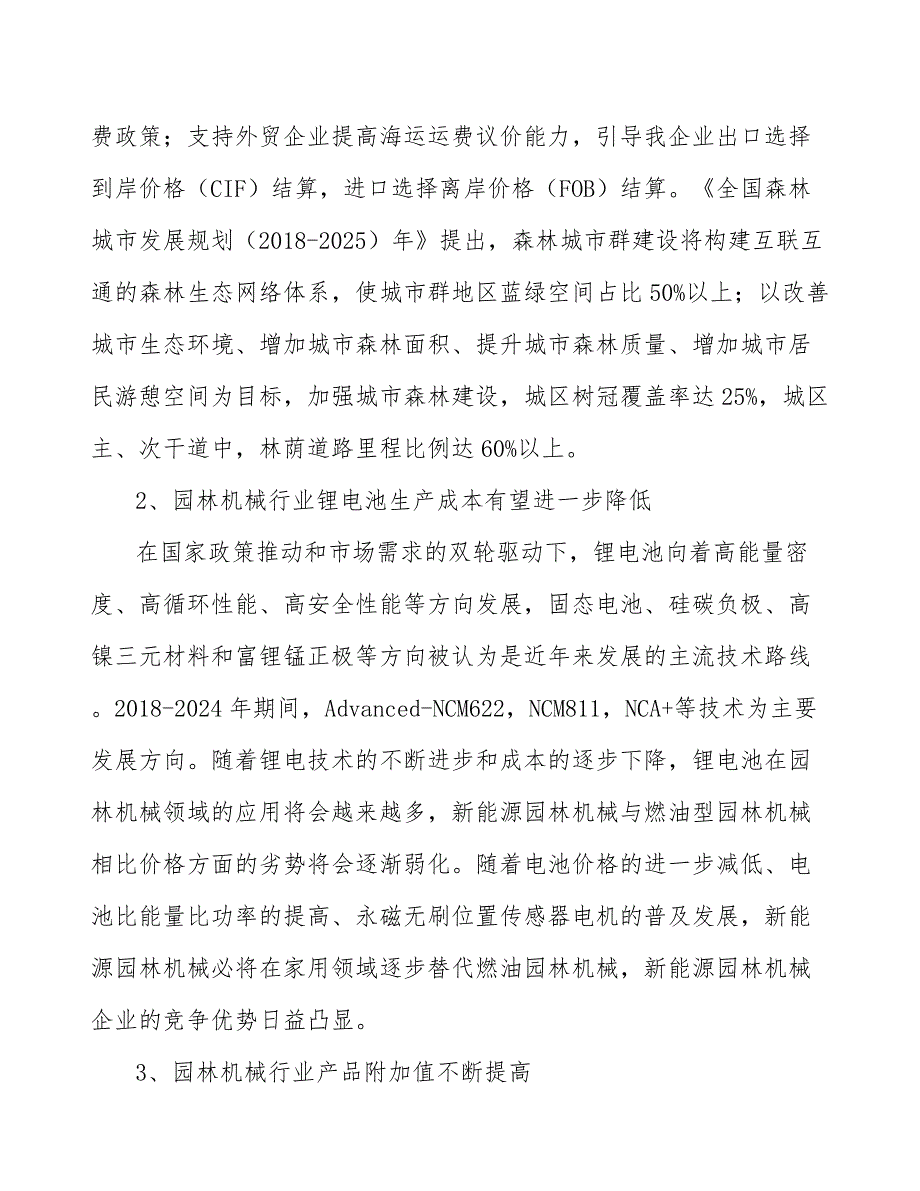 费政策；支持外贸企业提高海运运费议价能力，引导我企业出口选择
到岸价格（CIF）结算，进口选择离岸价格（FOB）结算。《全国森林
城市发展规划（2018-2025）年》提出，森林城市群建设将构建互联互
通的森林生态网络体系，使城市群地区蓝绿空间占比50%以上；以改善
城市生态环境、增加城市森林面积、提升城市森林质量、增加城市居
民游憩空间为目标，加强城市森林建设，城区树冠覆盖率达25%，城区
主、次干道中，林荫道路里程比例达60%以上。
2、园林机械行业锂电池生产成本有望进一步降低
在国家政策推动和市场需求的双轮驱动下，锂电池向着高能量密
度、高循环性能、高安全性能等方向发展，固态电池、硅碳负极、高
镍三元材料和富锂锰正极等方向被认为是近年来发展的主流技术路线
。2018-2024年期间，Advanced-NCM622，NCM811，NCA+等技术为主要
发展方向。随着锂电技术的不断进步和成本的逐步下降，锂电池在园
林机械领域的应用将会越来越多，新能源园林机械与燃油型园林机械
相比价格方面的劣势将会逐渐弱化。随着电池价格的进一步减低、电
池比能量比功率的提高、永磁无刷位置传感器电机的普及发展，新能
源园林机械必将在家用领域逐步替代燃油园林机械，新能源园林机械
企业的竞争优势日益凸显。
3、园林机械行业产品附加值不断提高